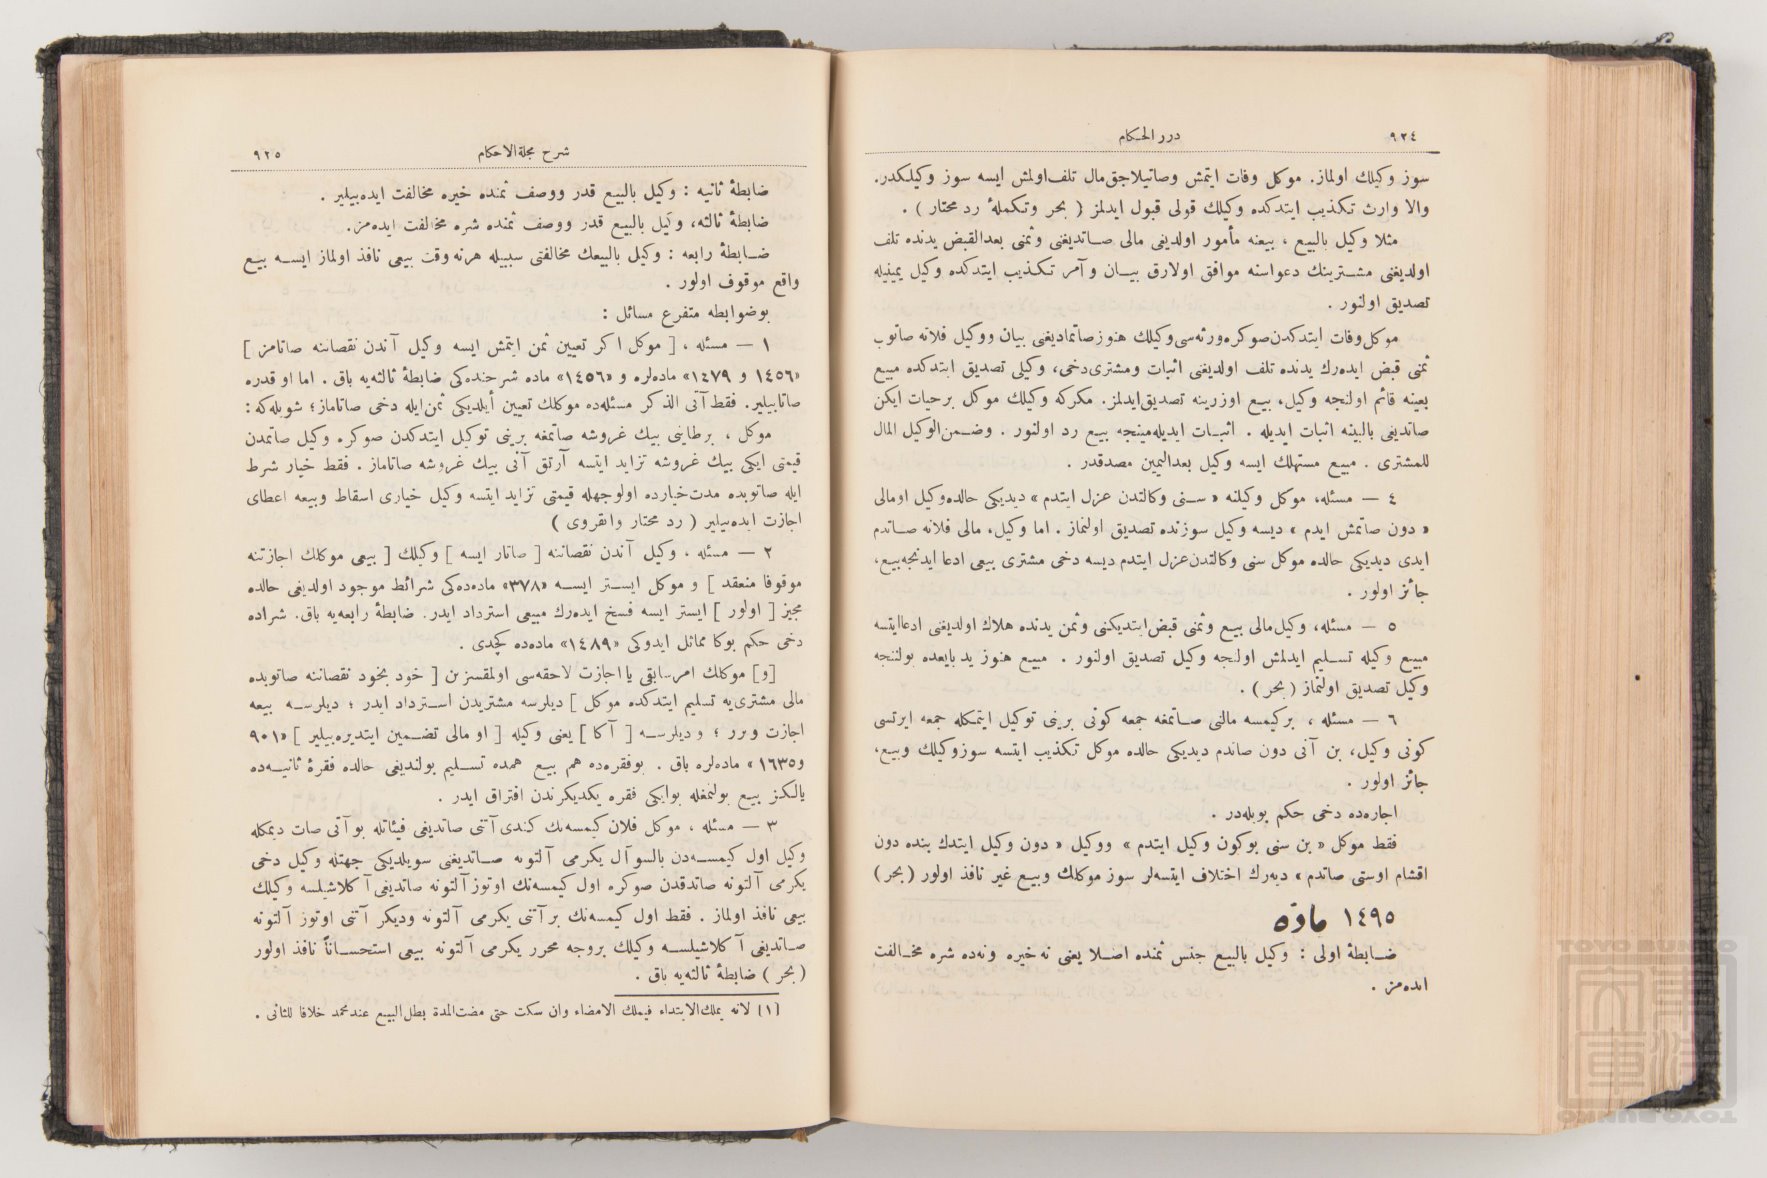 ٩٢٤
درر الحكام
سوز وكيلك اولماز. موكل وفات ايتمش وصاتيلاجق مال تلف اولمش ايسه سوز وكيلكدر.
والا وارث تكذيب ايتدكده وكيلك قولى قبول ايدلمز ( بحر وتكملۀ رد محتار ) .
مثلا وكيل بالبيع ، بيعنه مأمور اولديغى مالى صاتديغنى وثمنى بعدالقبض يدنده تلف
اولديغنى مشترينك دعواسنه موافق اولارق بيان وآمر تكذيب ايتدكده وكيل يمينيله
تصديق اولنور .
موكل وفات ايتدكدن صوكره ورثه سى وكيلك هنوز صاتماديغنى بيان ووكيل فلانه صاتوب
ثمنى قبض ايده رك يدنده تلف اولديغنى اثبات ومشترى دخى، وكيلى تصديق ايتدكده مبيع
بعينه قائم اولنجه وكيل، بيع اوزرينه تصديق ايدلمز. مكركه وكيلك موكل برحيات ايكن
صاتديغى بالبينه اثبات ايديله . اثبات ايديله مينجه بيع رد اولنور . وضمن الوكيل المال
للمشترى . مبيع مستهلك ايسه وكيل بعداليمين مصدقدر .
٤ — مسئله، موكل وكيلنه « سنى وكالتدن عزل ايتدم » ديديكى حالده وكيل اومالى
« دون صاتمش ايدم » ديسه وكيل سوزنده تصديق اولنماز . اما وكيل، مالى فلانه صاتدم
ايدى ديديكى حالده موكل سنى وكالتدن عزل ايتدم ديسه دخى مشترى بيعى ادعا ايدنجه بيع،
جائز اولور .
٥ — مسئله، وكيل مالى بيع وثمنى قبض ايتديكنى وثمن يدنده هلاك اولديغنى ادعا ايتسه
مبيع وكيله تسليم ايدلمش اولنجه وكيل تصديق اولنور . مبيع هنوز يد بايعده بولننجه
وكيل تصديق اولنماز ( بحر ) .
٦ — مسئله ، بركيمسه مالنى صاتمغه جمعه كونى برينى توكيل ايتمكله جمعه ايرتسى
كونى وكيل، بن آنى دون صاتدم ديديكى حالده موكل تكذيب ايتسه سوز وكيلك وبيع،
جائز اولور .
اجاره ده دخى حكم بويله در .
فقط موكل « بن سنى بوكون وكيل ايتدم » ووكيل « دون وكيل ايتدك بنده دون
اقشام اوستى صاتدم » ديه رك اختلاف ايتسه لر سوز موكلك وبيع غير نافذ اولور ( بحر )
١٤٩٥ ماده
ضابطۀ اولى : وكيل بالبيع جنس ثمنده اصلا يعنى نه خيره ونه ده شره مخالفت
ايده مز .
شرح مجلة الاحكام
٩٢٥
ضابطۀ ثانيه : وكيل بالبيع قدر ووصف ثمنده خيره مخالفت ايده بيلير .
ضابطۀ ثالثه، وكيل بالبيع قدر ووصف ثمنده شره مخالفت ايده مز.
ضابطۀ رابعه : وكيل بالبيعك مخالفتى سببيله هرنه وقت بيعى نافذ اولماز ايسه بيع
واقع موقوف اولور .
بوضوابطه متفرع مسائل :
١ — مسئله ، [ موكل اكر تعيين ثمن ايتمش ايسه وكيل آندن نقصاننه صاتامز ]
«١٤٥٦ و ١٤٧٩» ماده لره و «١٤٥٦» ماده شرحنده كى ضابطۀ ثالثه يه باق . اما او قدره
صاتابيلير. فقط آتى الذكر مسئله ده موكلك تعيين أيلديكى ثمن ايله دخى صاتاماز؛ شويله كه :
موكل ، برطاينى بيك غروشه صاتمغه برينى توكيل ايتدكدن صوكره وكيل صاتمدن
قيمتى ايكى بيك غروشه تزايد ايتسه آرتق آنى بيك غروشه صاتاماز . فقط خيار شرط
ايله صاتوبده مدت خيارده اولوجهله قيمتى تزايد ايتسه وكيل خيارى اسقاط وبيعه اعطاى
اجازت ايده بيلير ( رد محتار وانقروى )
٢ — مسئله ، وكيل آندن نقصاننه [ صاتار ايسه ] وكيلك [ بيعى موكلك اجازتنه
موقوفا منعقد ] و موكل ايستر ايسه «٣٧٨» ماده ده كى شرائط موجود اولديغى حالده
مجيز [ اولور ] ايستر ايسه فسخ ايده رك مبيعى استرداد ايدر. ضابطۀ رابعه يه باق. شراده
دخى حكم بوكا مماثل ايدوكى «١٤٨٩» ماده ده كچدى .
[و] موكلك امر سابقى يا اجازت لاحقه سى اولمقسزين [ خود بخود نقصاننه صاتوبده
مالى مشترى يه تسليم ايتدكده موكل ] ديلرسه مشتريدن استرداد ايدر ؛ ديلرسه بيعه
اجازت ويرر ؛ و ديلرسه [ آكا ] يعنى وكيله [ او مالى تضمين ايتديره بيلير ] «٩٠١
و١٦٣٥» ماده لره باق . بوفقره ده هم بيع همده تسليم بولنديغى حالده فقرۀ ثانيه ده
يالكز بيع بولنمغله بوايكى فقره يكديكرندن افتراق ايدر .
٣ — مسئله ، موكل فلان كيمسه نك كندى آتنى صاتديغى فيئاتله بو آتى صات ديمكله
وكيل اول كيمسه دن بالسوآل يكرمى آلتونه صاتديغنى سويلديكى جهتله وكيل دخى
يكرمى آلتونه صاتدقدن صوكره اول كيمسه نك اوتوز آلتونه صاتديغى آكلاشيلسه وكيلك
بيعى نافذ اولماز . فقط اول كيمسه نك بر آتنى يكرمى آلتونه وديكر آتنى اوتوز آلتونه
صاتديغى آكلاشيلسه وكيلك بروجه محرر يكرمى آلتونه بيعى استحساناً نافذ اولور
( بحر ) ضابطۀ ثالثه يه باق .
[١] لانه يملك الابتداء فيملك الامضاء وان سكت حتى مضت المدة بطل البيع عند محمد خلافا للثانى .
TOYO BUNKO
TOYO BUNKO